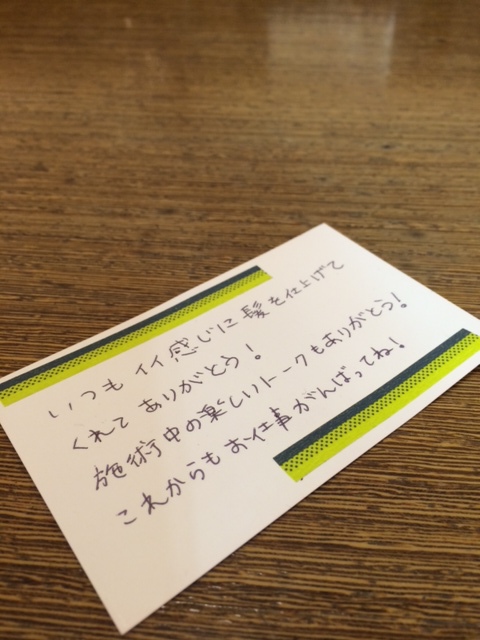 いつもイイ感じに髪を仕上げて
くれてありがとう!
施術中の楽しいトークもありがとう!
これからもお仕事がんばってね!